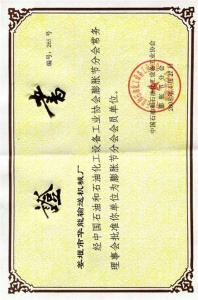 證書
编号：265号
姜堰市华能输送机械厂
经中国石油和石油化工设备工业协会膨胀节分会常务
理事会批准你单位为膨胀节分会会员单位。
中国石油和石油化工设备工业协会
膨胀节分会